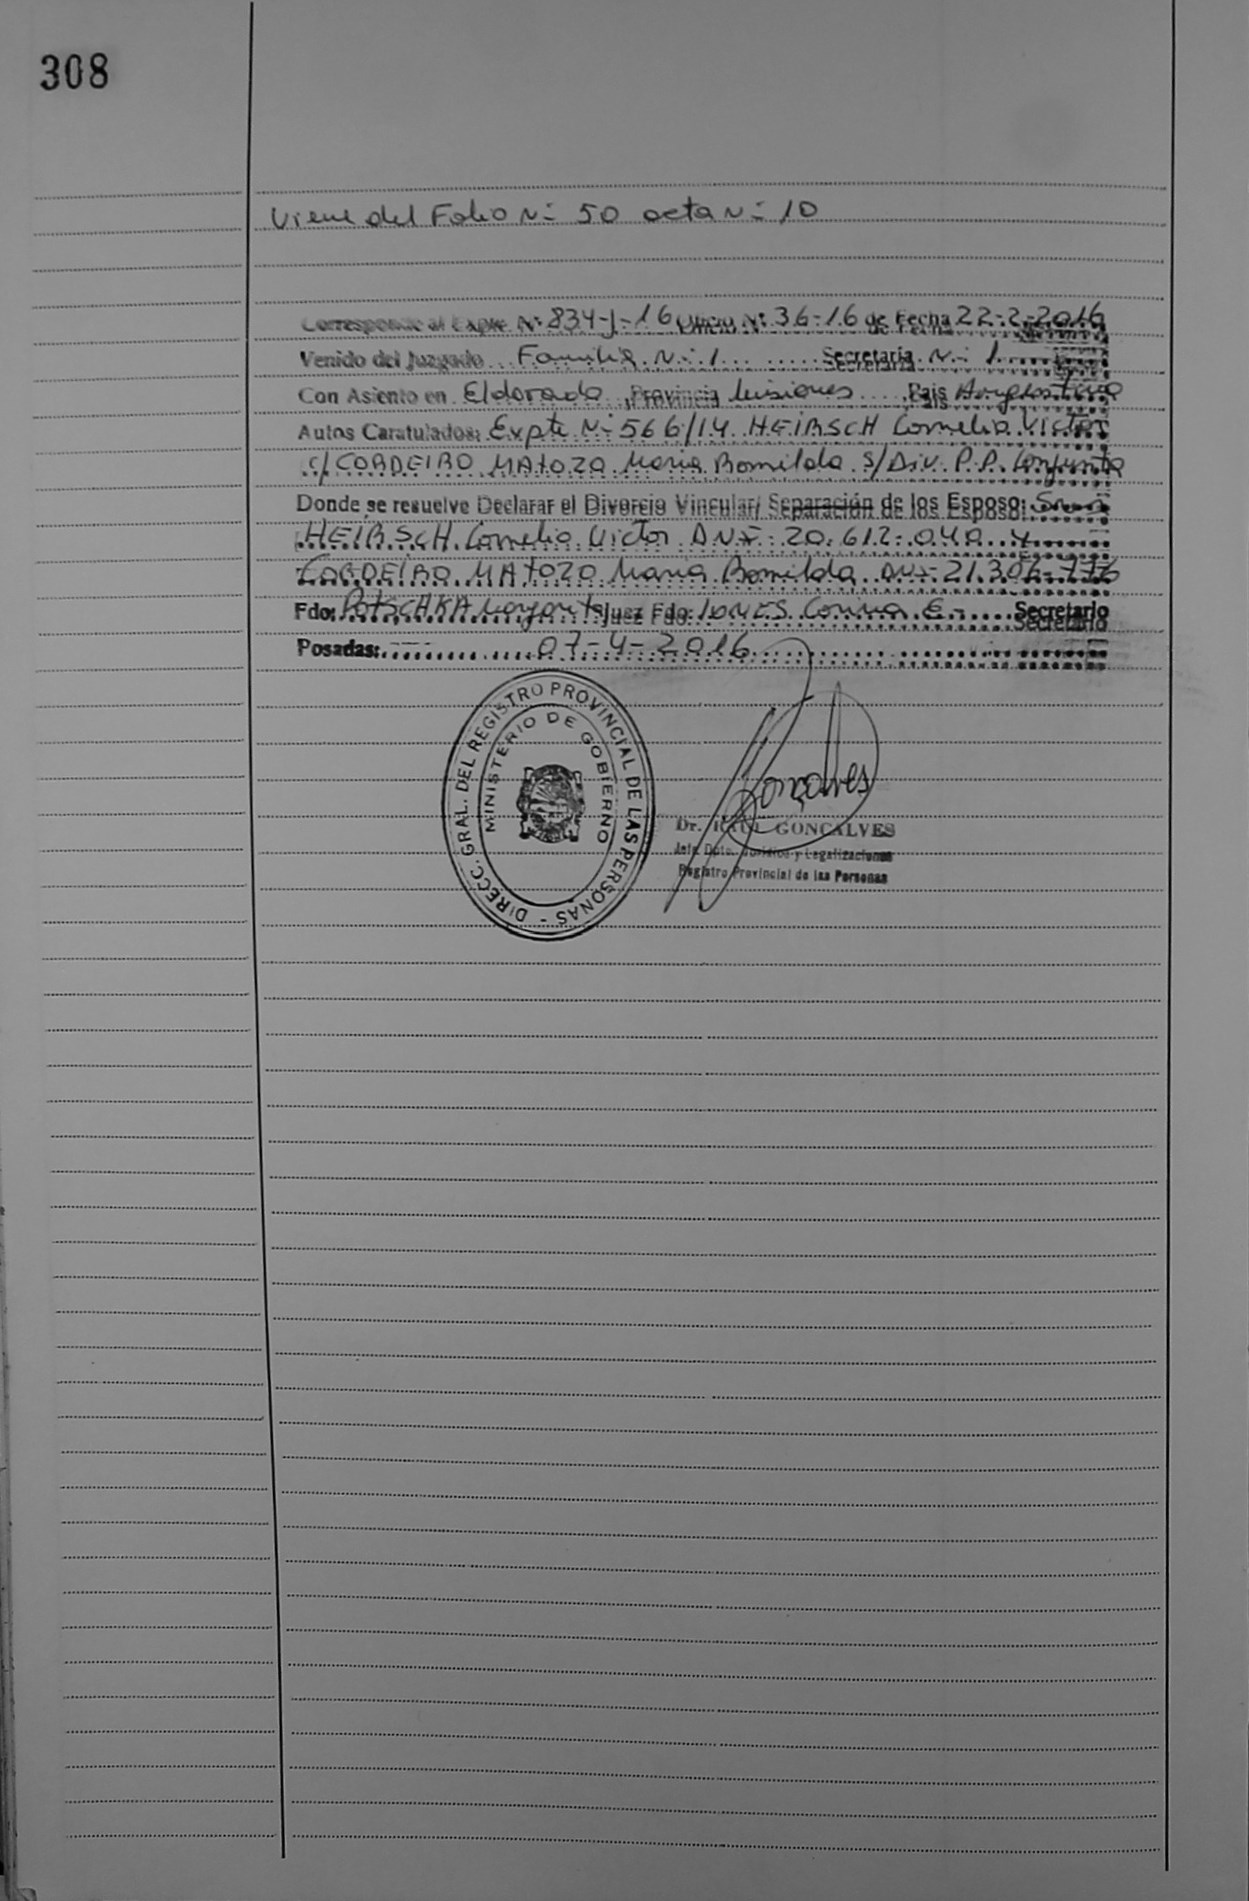 308
Viene del Folio Nº 50 acta Nº 10
Corresponde al Expte. Nº 834-J-16 Oficio Nº 36-16 de Fecha 22-2-2016
Venido del Juzgado Familia Nº 1 Secretaria Nº 1
Con Asiento en Eldorado Provincia Misiones Pais Argentina
Autos Caratulados: Expte Nº 566/14 HEIRSCH Cornelio Victor
c/ CORDEIRO MATOZO Maria Romilda s/ Div. P.P. Conjunta
Donde se resuelve Declarar el Divorcio Vincular/ Separación de los Esposo:
HEIRSCH Cornelio Victor D.N.I. 20.612.040 y
CORDEIRO MATOZO Maria Romilda DNI 21.306.776
Fdo: POTSCHKA Margarita Juez Fdo: JONES Corina E. Secretario
Posadas: 07-4-2016
DIRECC. GRAL. DEL REGISTRO PROVINCIAL DE LAS PERSONAS -
MINISTERIO DE GOBIERNO
Goncalves
Dr. RAUL GONCALVES
Jefe Dpto. Jurídico y Legalizaciones
Registro Provincial de las Personas